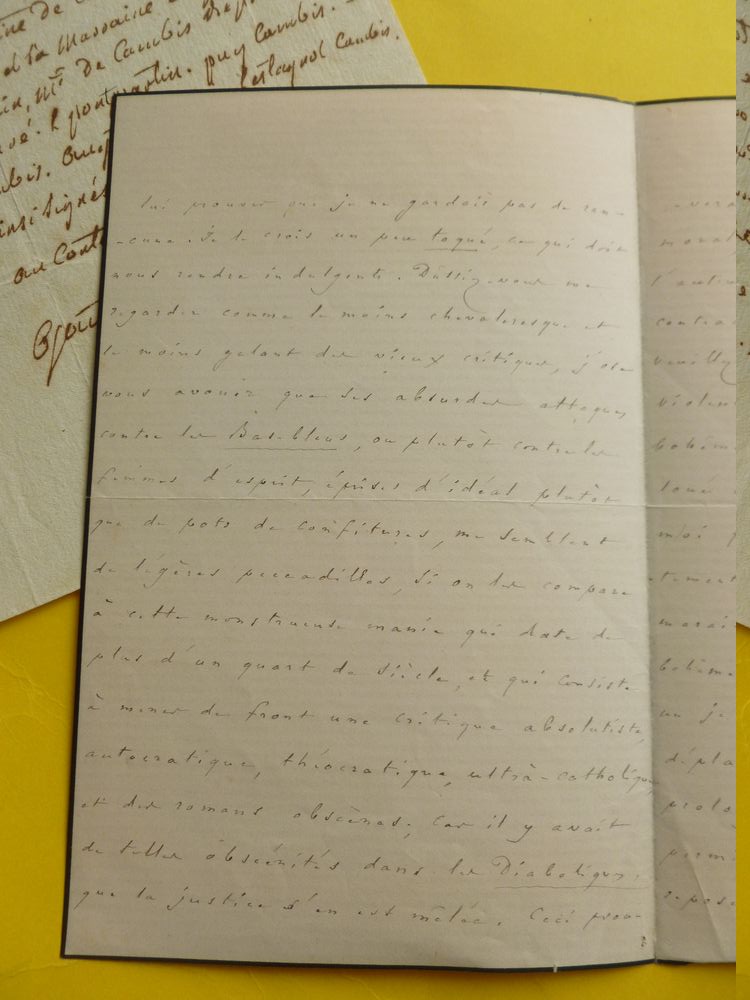 ine de C
et sa Massaine
in, Mr De Cambis
vé. puy Cambis.
Lestagnol Cambis.
mbis.
insi signés
au Cont
lui prouver que je ne gardois pas de ran-
-cune. Je le crois un peu toqué, ce qui doit
nous rendre indulgents. Dussiez-vous me
regarder comme le moins chevaleresque et
le moins galant des vieux critiques, j'ose
vous avouer que ses absurdes attaques
contre les Bas-bleus, ou plutôt contre les
femmes d'esprit, éprises d'idéal plutôt
que de pots de confitures, me semblent
de légères peccadilles, si on les compare
à cette monstrueuse manie qui date de
plus d'un quart de siècle, et qui consiste
à mener de front une critique absolutiste,
autocratique, théocratique, ultrà-catholique,
et des romans obscènes; car il y avait
de telles obscénités dans les Diaboliques,
que la justice s'en est mêlée. Ceci prou-
mona
l'autr
contra
veuilly
violen
bohèm
loué
moi
tement
marai
bohème
un je
dépla
prolo
permi
repose